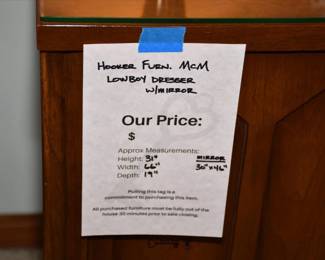 HOOKER FURN. MCM
LOWBOY DRESSER
W/MIRROR
Our Price:
$
Approx Measurements:
Height: 31"
Width: 66"
Depth: 19"
MIRROR
30"x46"
Pulling this tag is a
commitment to purchasing this item.
All purchased furniture must be fully out of the
house 30 minutes prior to sale closing.